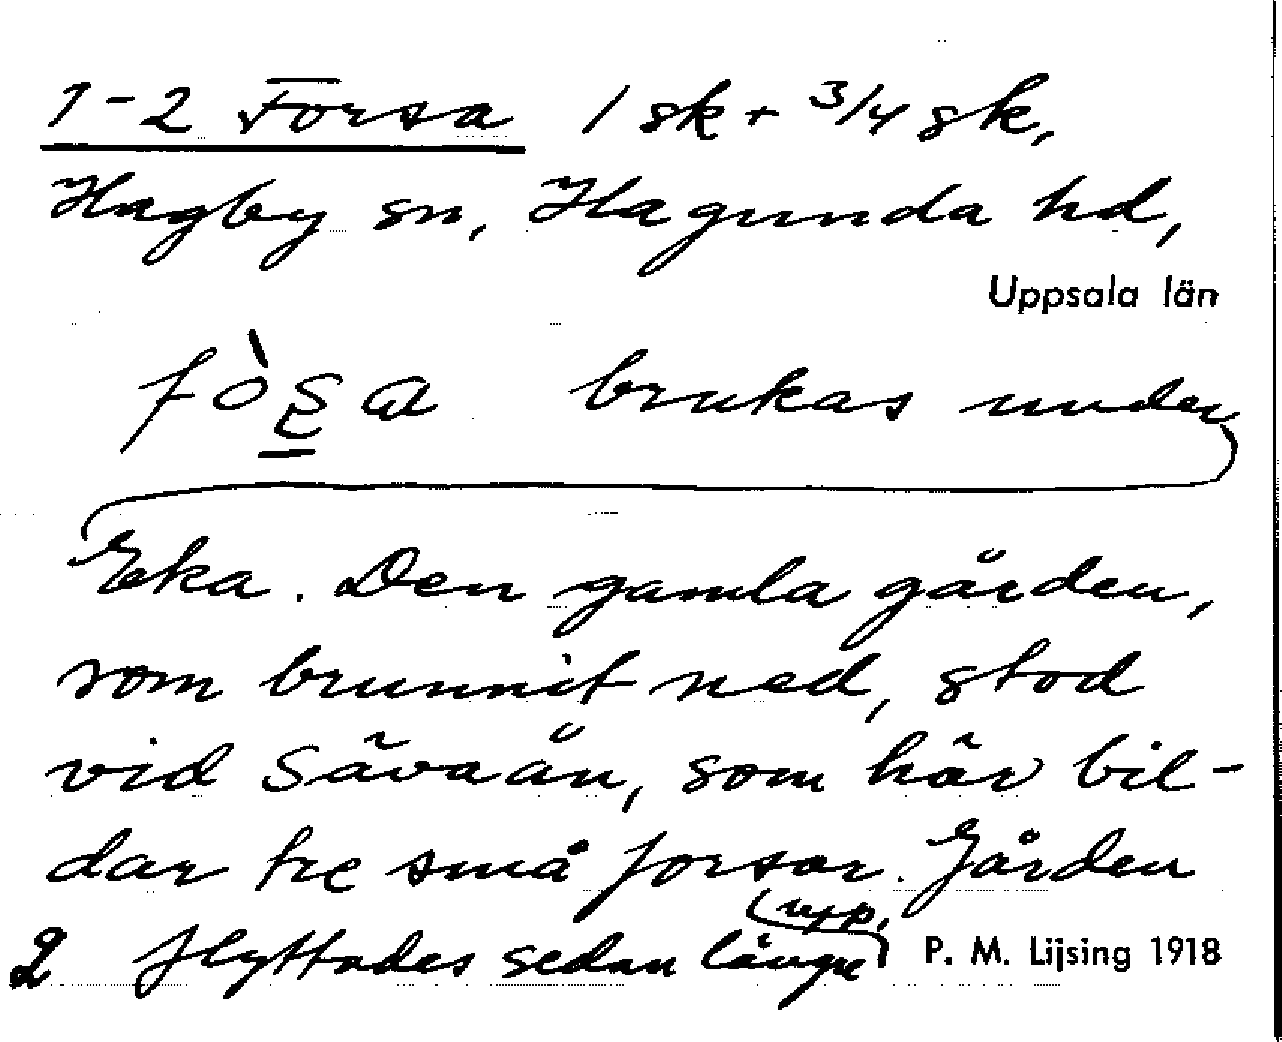 1-2 Forsa 1 sk + 3/4 sk,
Hagby sn, Hagunda hd,
Uppsala län
brukas under
Eka. Den gamla gården,
som brunnit ned, stod
vid Sävaån, som här bil-
dar tre små forsar. Gården
2 flyttades sedan länge upp,
P. M. Lijsing 1918